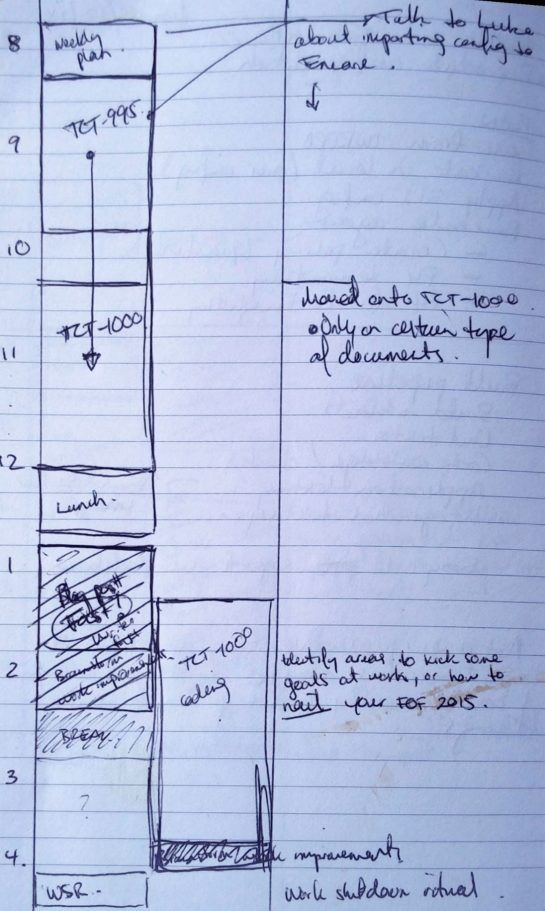 8
weekly
plan.
Talk to Luke
about importing config to
TCT-995
9
10
Moved onto TCT-1000
• Only on certain type
of documents.
TCT-1000
11
12
Lunch.
1
Blog post
Write
first
Brainstorm
work improvements
TCT-1000
coding
2
Identify areas to kick some
goals at work, or how to
nail your FOF 2015.
BREAK
3
?
4.
work improvements
WSR.
Work shutdown ritual.